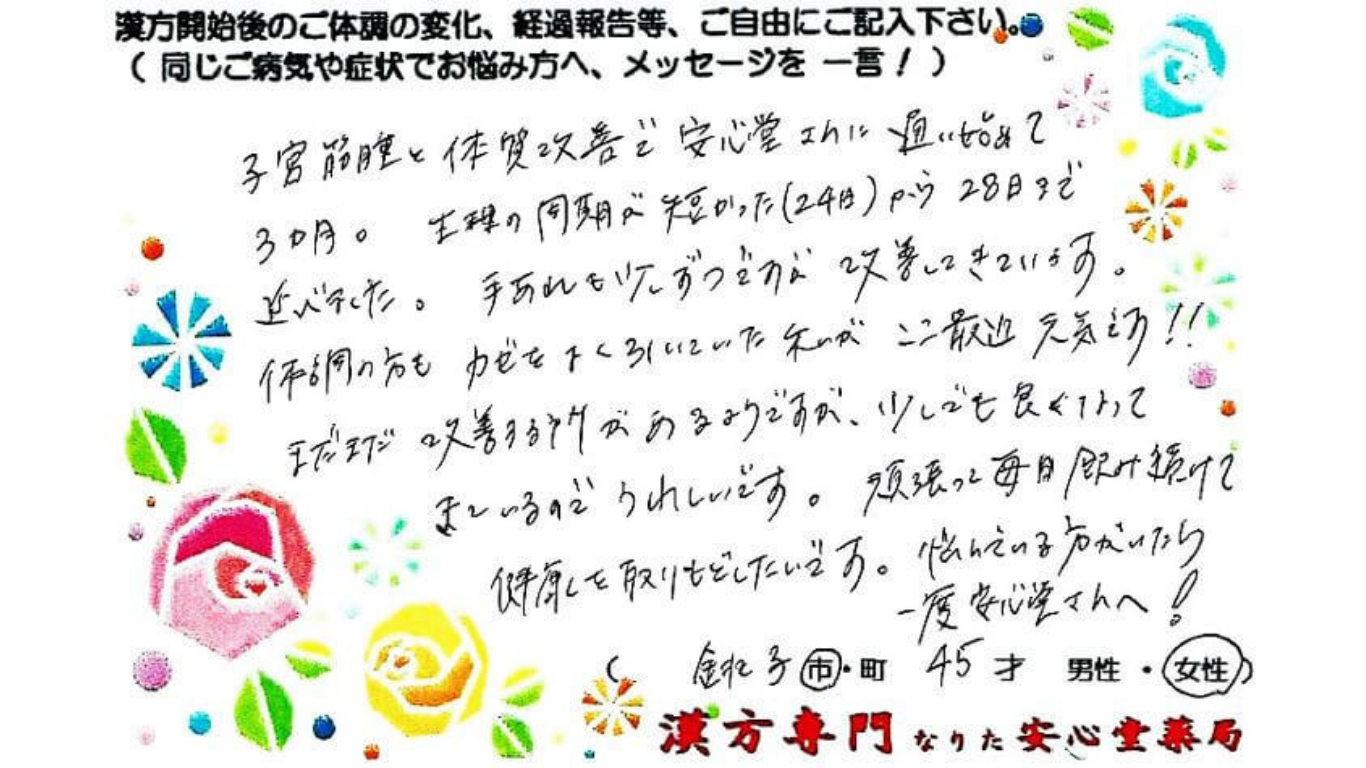 漢方開始後のご体調の変化、経過報告等、ご自由にご記入下さい。
(同じご病気や症状でお悩み方へ、メッセージを 一言!)
子宮筋腫と体質改善で 安心堂さんに 通い始めて
3カ月。 生理の周期が短かった(24日)から 28日まで
近づきました。 手あれも少しずつですが 改善してきています。
体調の方も カゼをよく引いていた私が ここ最近 元気です!!
まだまだ 改善する所があるようですが、少しでも良くなって
きているので うれしいです。 頑張って毎日飲み続けて
健康を取りもどしたいです。 悩んでいる方がいたら
一度 安心堂さんへ!
( 銚子 市・町 45才 男性・女性)
漢方専門 なりた 安心堂薬局